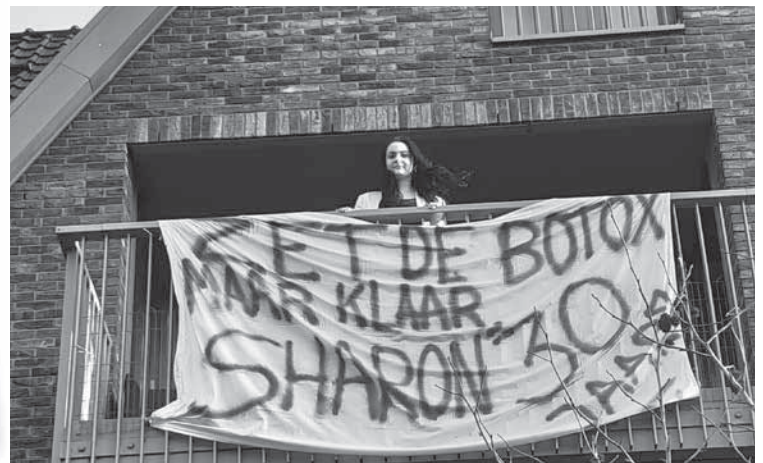 ZET DE BOTOX
MAAR KLAAR
SHARON 30
JAAR